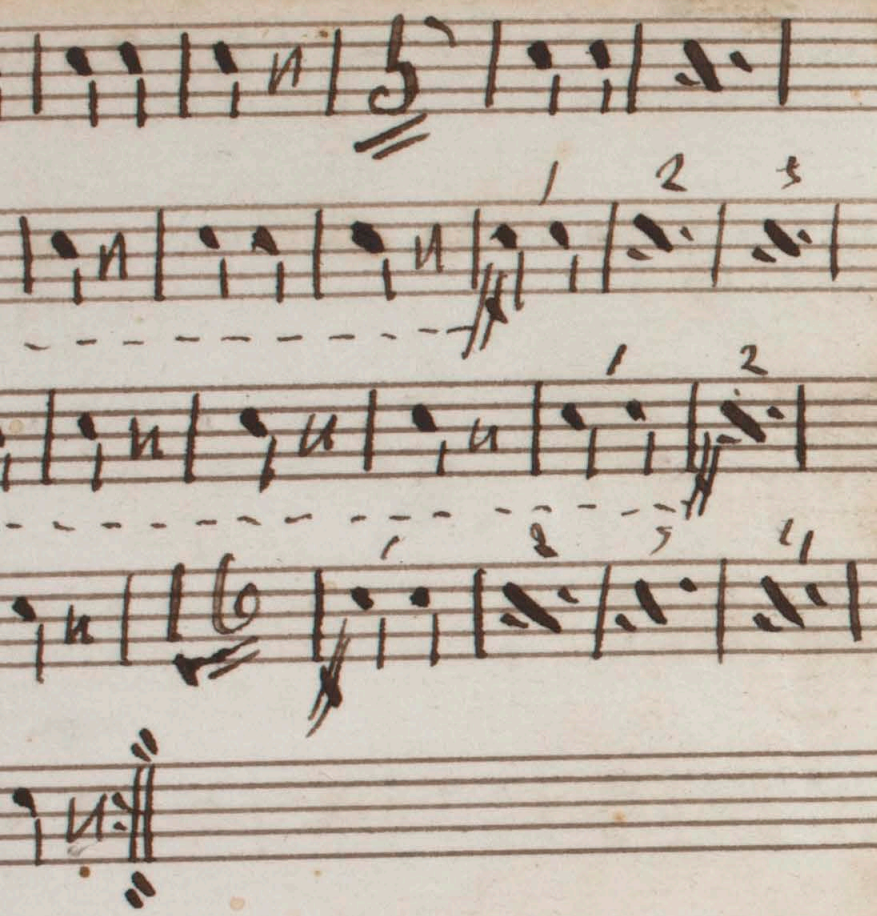 5
1 2 3
1 2
16
1 2 3 4